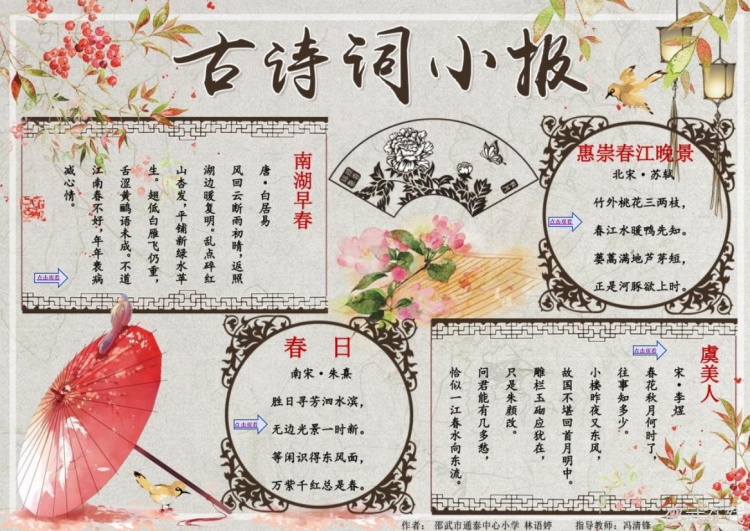 古诗词小报
南湖早春
唐·白居易
风回云断雨初晴，返照
湖边暖复明。乱点碎红
山杏发，平铺新绿水苹
生。翅低白雁飞仍重，
舌涩黄鹂语未成。不道
江南春不好，年年衰病
减心情。
点击观看
惠崇春江晚景
北宋·苏轼
竹外桃花三两枝，
春江水暖鸭先知。
蒌蒿满地芦芽短，
正是河豚欲上时。
点击观看
春 日
南宋·朱熹
胜日寻芳泗水滨，
无边光景一时新。
等闲识得东风面，
万紫千红总是春。
点击观看
虞美人
宋·李煜
春花秋月何时了，
往事知多少。
小楼昨夜又东风，
故国不堪回首月明中。
雕栏玉砌应犹在，
只是朱颜改。
问君能有几多愁，
恰似一江春水向东流。
点击观看
作者： 邵武市通泰中心小学 林语婷 指导教师：冯清锋